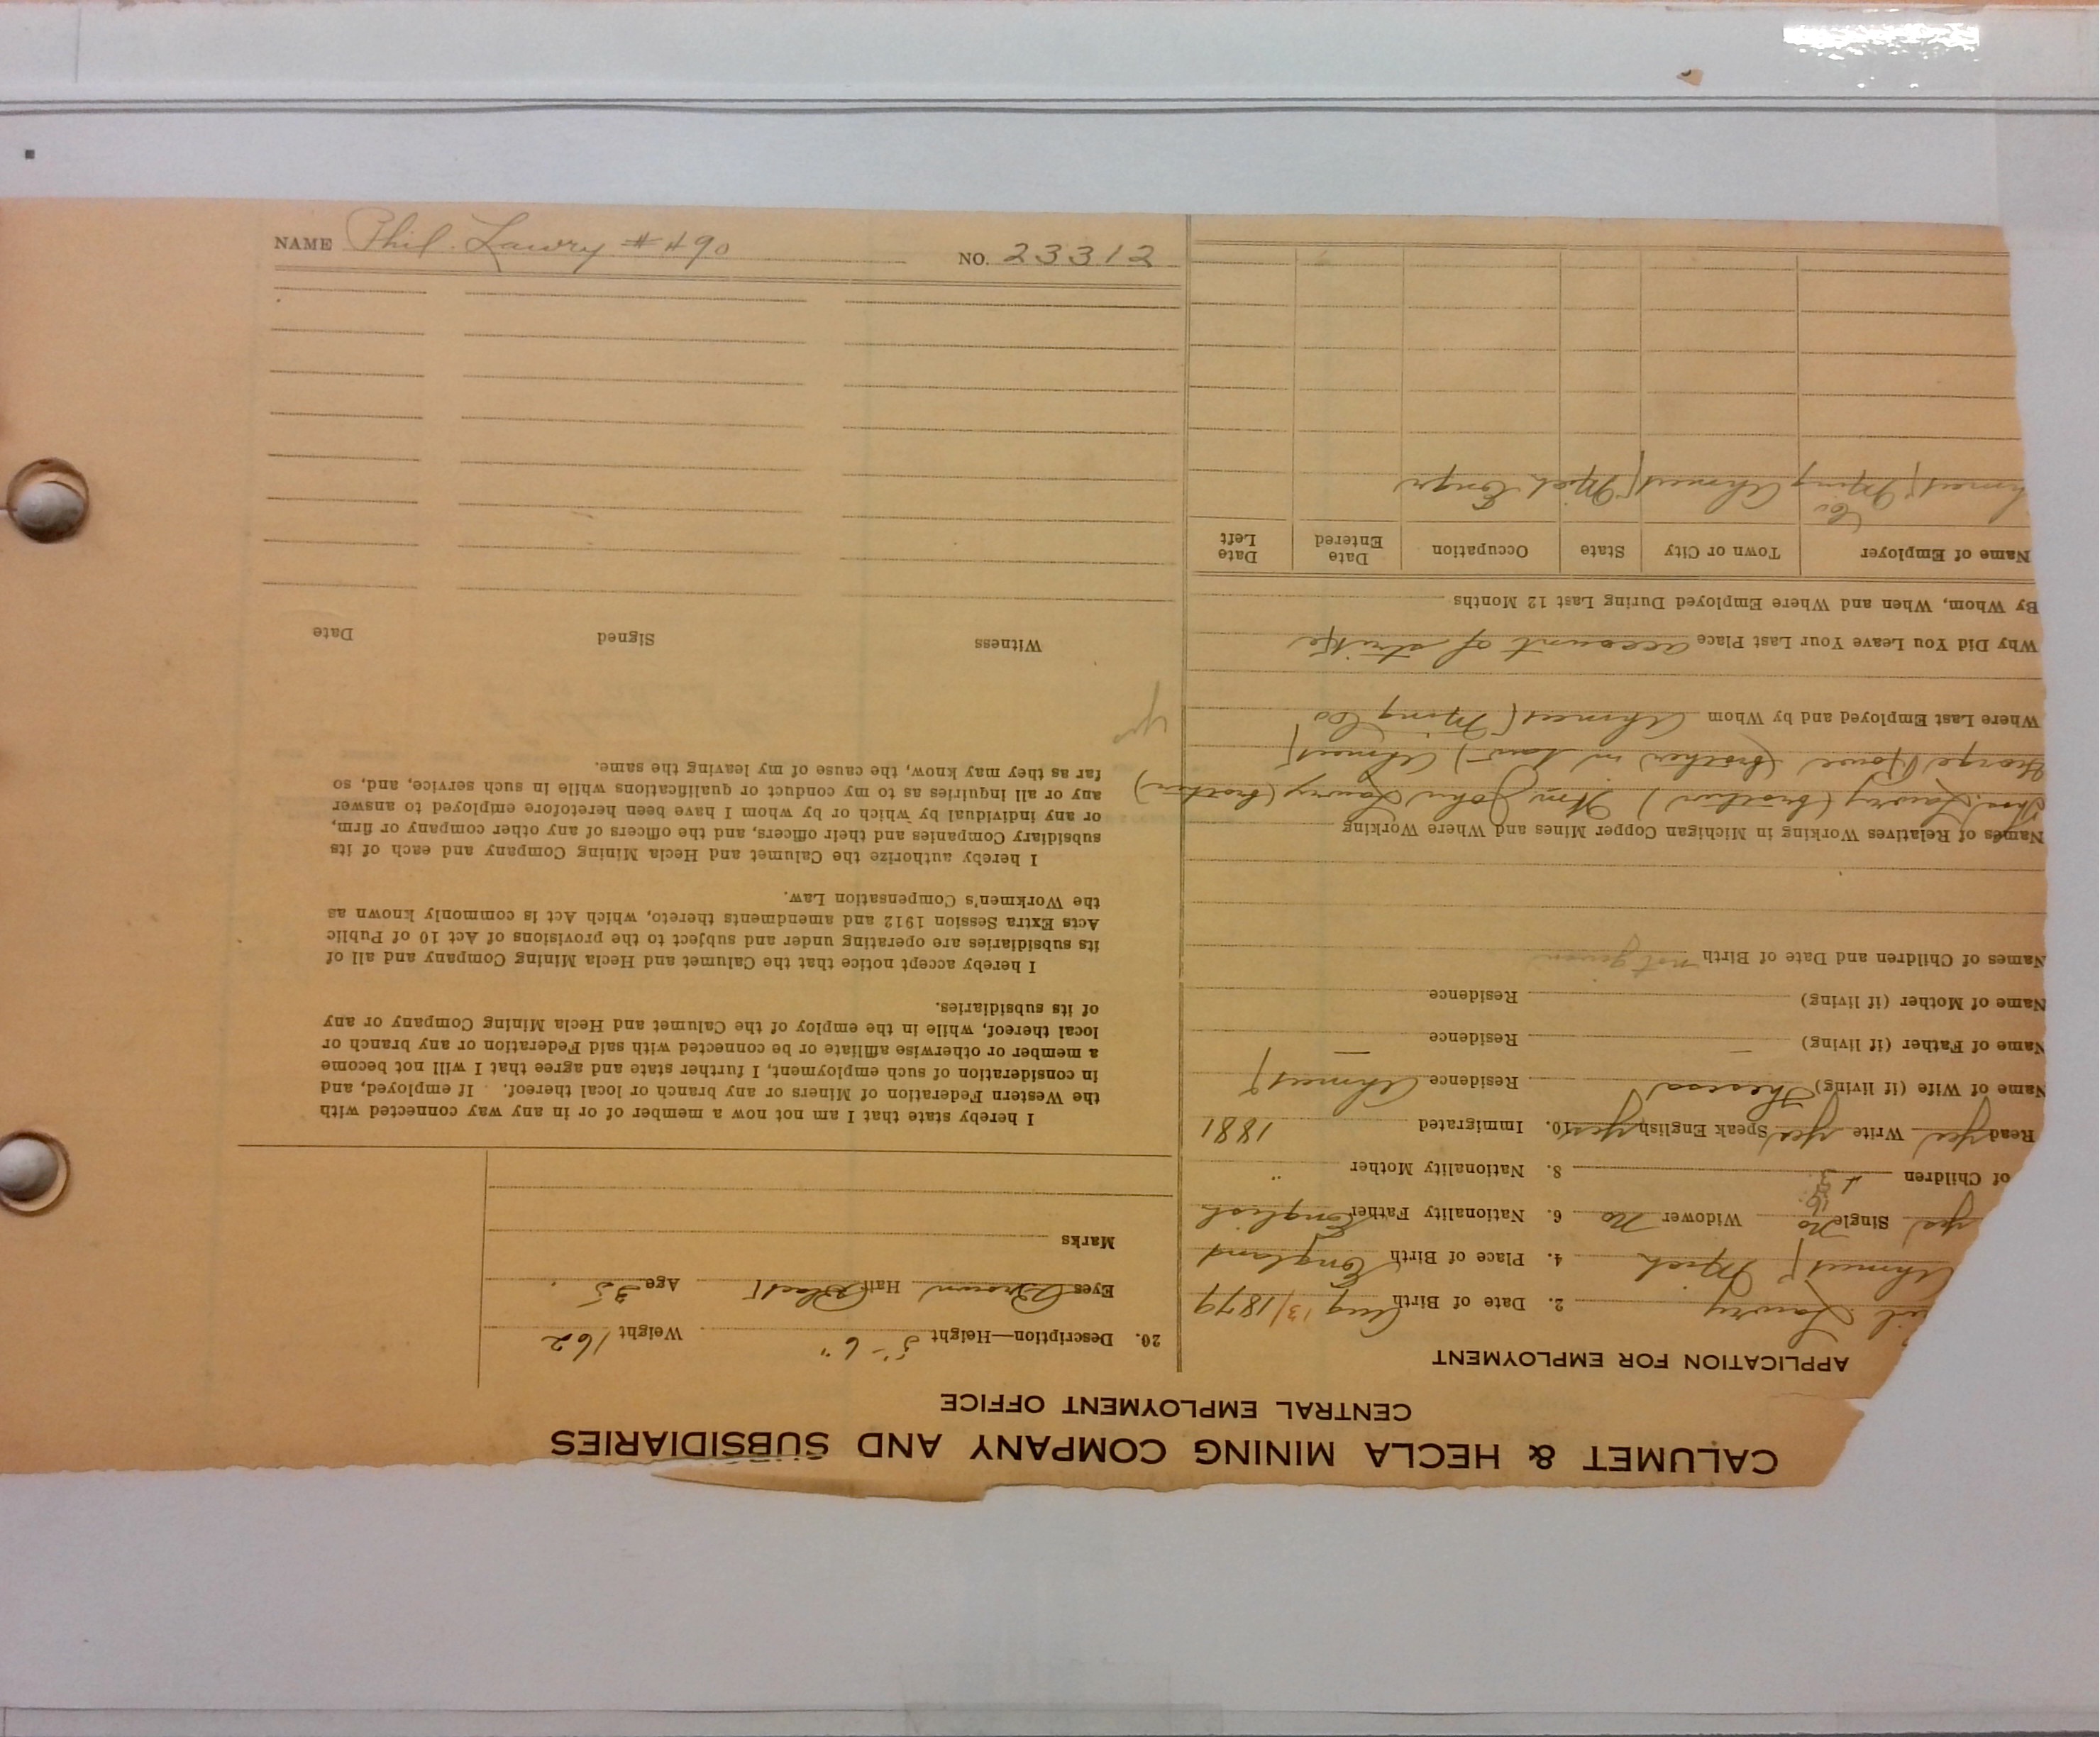 NAME Phil. Lawry # 490 NO. 23312
CALUMET & HECLA MINING COMPANY AND SUBSIDIARIES
CENTRAL EMPLOYMENT OFFICE
APPLICATION FOR EMPLOYMENT
il Lawry 2. Date of Birth Aug 13/1879
Ahmeek Mich 4. Place of Birth England
yes Single No Widower No 6. Nationality Father English
of Children 8. Nationality Mother "
Read yes Write yes Speak English yes 10. Immigrated 1881
Name of Wife (if living) Theresa Residence Ahmeek
Name of Father (if living) — Residence —
Name of Mother (if living) Residence
Names of Children and Date of Birth not given
Names of Relatives Working in Michigan Copper Mines and Where Working
Thos. Lawry (brother) Wm John Lawry (brother)
George Rowe (brother in law) Ahmeek
Where Last Employed and by Whom Ahmeek Ming Co
Why Did You Leave Your Last Place account of strike
By Whom, When and Where Employed During Last 12 Months
Name of Employer Town or City State Occupation Date Entered Date Left
hmeek Ming Co Ahmeek Mich Engr
20. Description—Height 5-6" Weight 162
Eyes Brown Hair Black Age 35
Marks
I hereby state that I am not now a member of or in any way connected with
the Western Federation of Miners or any branch or local thereof. If employed, and
in consideration of such employment, I further state and agree that I will not become
a member or otherwise affiliate or be connected with said Federation or any branch or
local thereof, while in the employ of the Calumet and Hecla Mining Company or any
of its subsidiaries.
I hereby accept notice that the Calumet and Hecla Mining Company and all of
its subsidiaries are operating under and subject to the provisions of Act 10 of Public
Acts Extra Session 1912 and amendments thereto, which Act is commonly known as
the Workmen's Compensation Law.
I hereby authorize the Calumet and Hecla Mining Company and each of its
subsidiary Companies and their officers, and the officers of any other company or firm,
or any individual by which or by whom I have been heretofore employed to answer
any or all inquiries as to my conduct or qualifications while in such service, and, so
far as they may know, the cause of my leaving the same.
Witness Signed Date